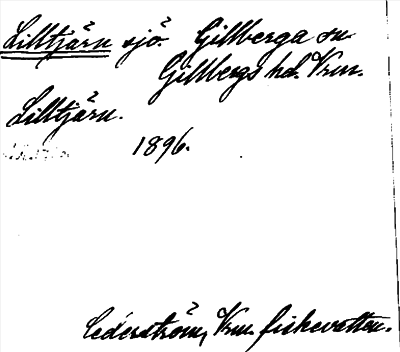 Lilltjärn sjö. Gillberga sn
Gillbergs hd. Vrm.
Lilltjärn.
1896.
Cederström, Vrm. fiskevatten.